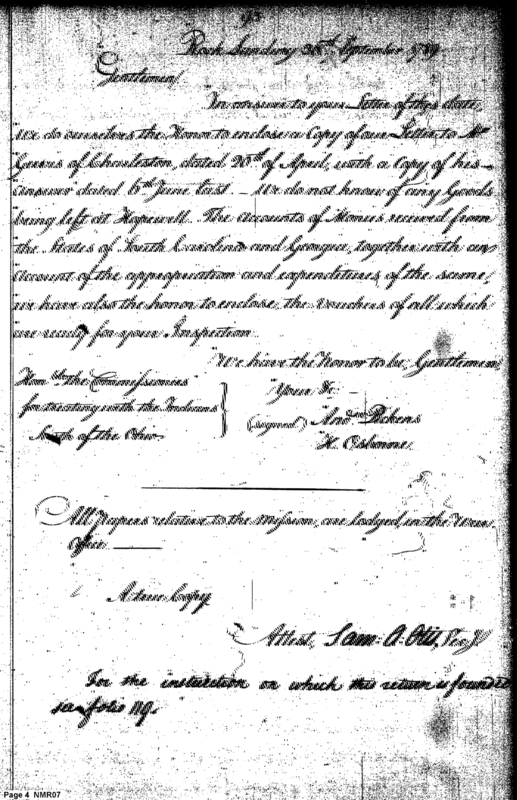 93
Rock Landing 28th September 1789
Gentlemen
In answer to your Letter of this date,
we do ourselves the Honor to enclose a Copy of our Letter to Mr
of Charleston, dated 20th of April, with a Copy of his
answer dated 6th June last - We do not know of any Goods
being left at Hopewell. The accounts of Monies received from
the States of South Carolina and Georgia, together with an
account of the appropriation and expenditures of the same,
we have also the honor to enclose, the vouchers of all which
are ready for your Inspection.
We have the honor to be, Gentlemen,
Honble the Commissioners
for treating with the Indians
South of the Ohio
Your &c
(signed) And Pickens
H. Osborne.
All Papers relative to the Mission, are lodged in the War
Office.
A true Copy
Attest, Sam. A. Otis, Secy
For the instruction on which this return is founded
see folio 119.
Page 4 NMR07